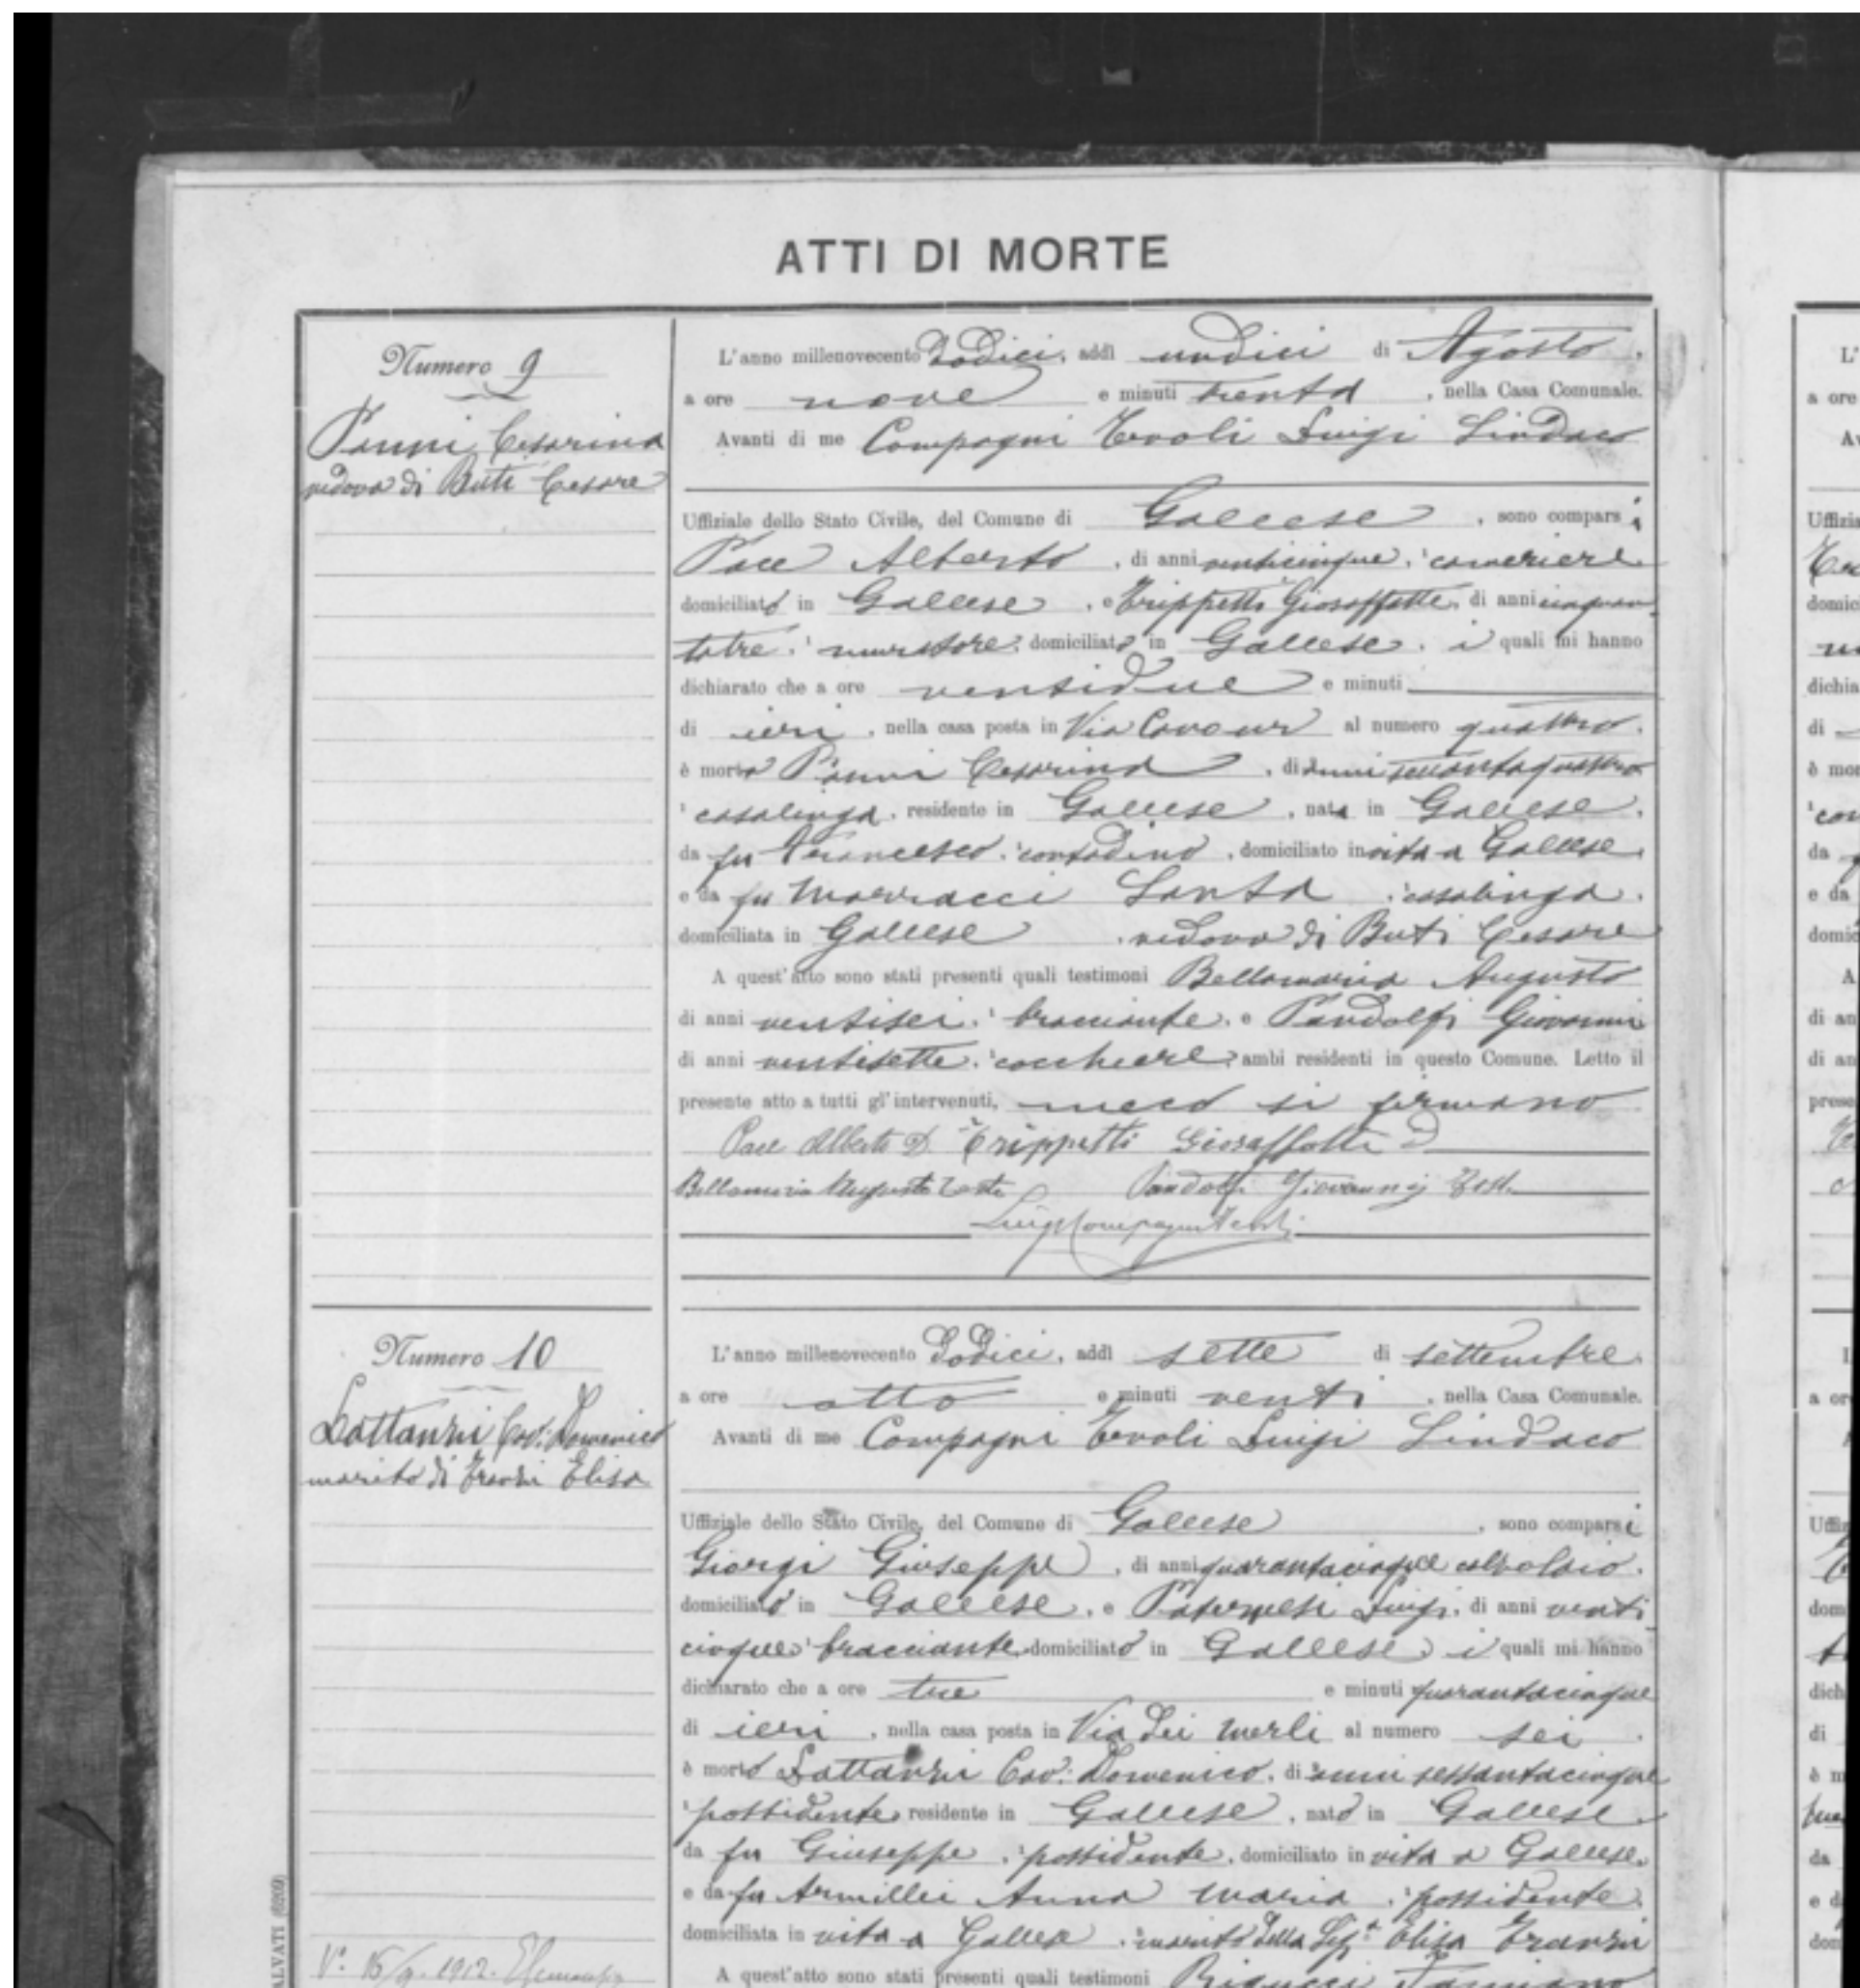 ATTI DI MORTE
Numero 9
Panni Cesarina
vedova di Buti Cesare
L'anno millenovecento dodici, addì undici di Agosto,
a ore nove e minuti trenta, nella Casa Comunale.
Avanti di me Compagni Ervoli Luigi Sindaco
Uffiziale dello Stato Civile, del Comune di Gallese, sono comparsi
Pace Alberto, di anni venticinque, cameriere
domiciliato in Gallese, e Trippetti Giosaffatte, di anni cinquan-
tatre, muratore, domiciliato in Gallese, i quali mi hanno
dichiarato che a ore ventidue e minuti
di ieri, nella casa posta in Via Cavour al numero quattro,
è morta Panni Cesarina, di anni settantaquattro
casalinga, residente in Gallese, nata in Gallese,
da fu Francesco, contadino, domiciliato in vita a Gallese
e da fu Marracci Santa, casalinga,
domiciliata in Gallese, vedova di Buti Cesare
A quest'atto sono stati presenti quali testimoni Bellamaria Augusto
di anni ventisei, bracciante, e Pandolfi Giovanni
di anni ventisette, cocchiere, ambi residenti in questo Comune. Letto il
presente atto a tutti gl'intervenuti, meco si firmano
Pace Alberto D. Trippetti Giosaffatte D
Bellamaria Augusto Teste Pandolfi Giovanni Test.
Luigi Compagni Ervoli
Numero 10
Lattanzi Cav: Domenico
marito di Franzi Elisa
L'anno millenovecento dodici, addì sette di settembre
a ore otto e minuti venti, nella Casa Comunale.
Avanti di me Compagni Ervoli Luigi Sindaco
Uffiziale dello Stato Civile, del Comune di Gallese, sono comparsi
Giorgi Giuseppe, di anni quarantacinque calzolaio,
domiciliato in Gallese, e Paternesi Luigi, di anni venti-
cinque bracciante domiciliato in Gallese, i quali mi hanno
dichiarato che a ore tre e minuti quarantacinque
di ieri, nella casa posta in Via dei Merli al numero sei,
è morto Lattanzi Cav: Domenico, di anni sessantacinque
possidente, residente in Gallese, nato in Gallese
da fu Giuseppe, possidente, domiciliato in vita a Gallese,
e da fu Armillei Anna Maria, possidente,
domiciliata in vita a Gallese, marito della Sigª Elisa Franzi
A quest'atto sono stati presenti quali testimoni
V° 15/9. 1912.
ALVATI (6209)
L'
a ore
Uffizia
domic
dichia
di
è mor
da
e da
domic
A
di an
di an
prese